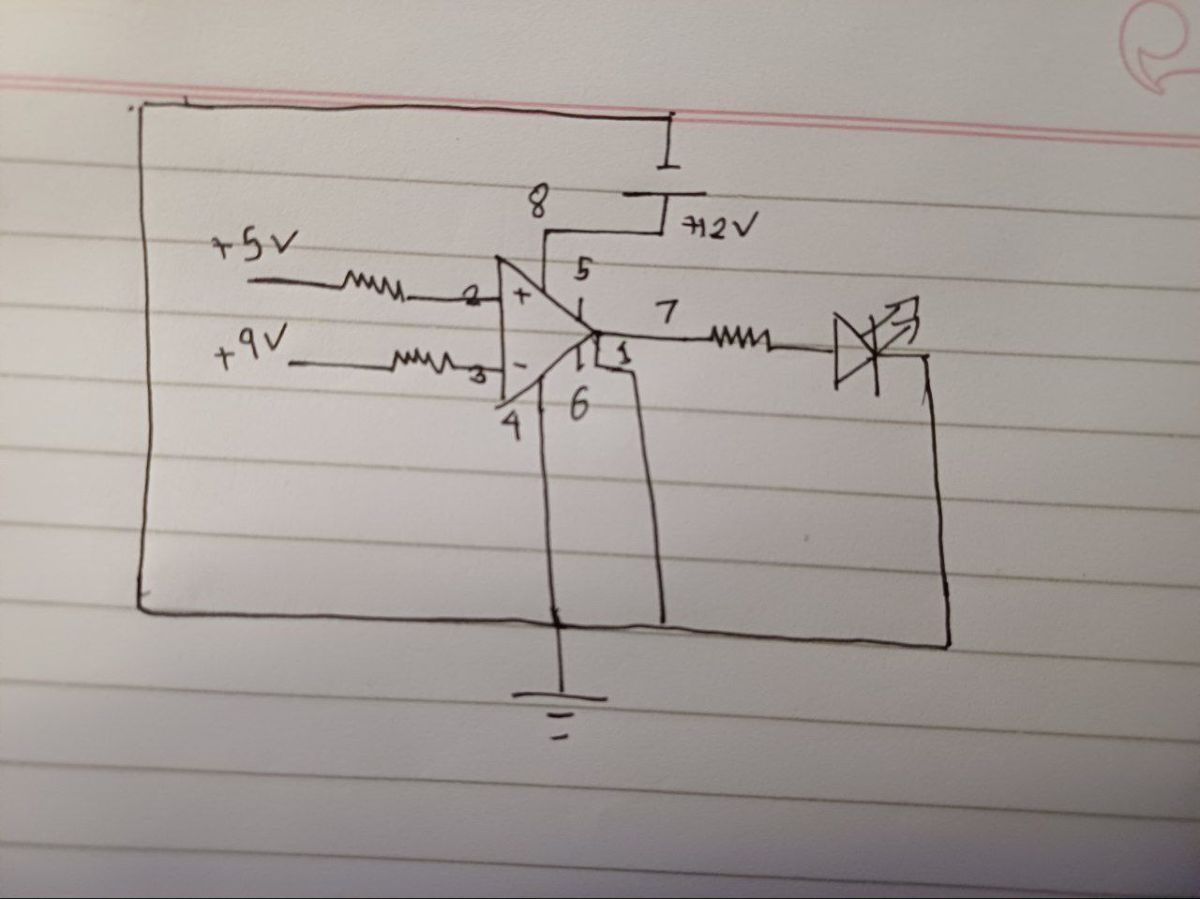 8
+12V
+5V
5
2
+
7
+9V
3
-
1
4
6